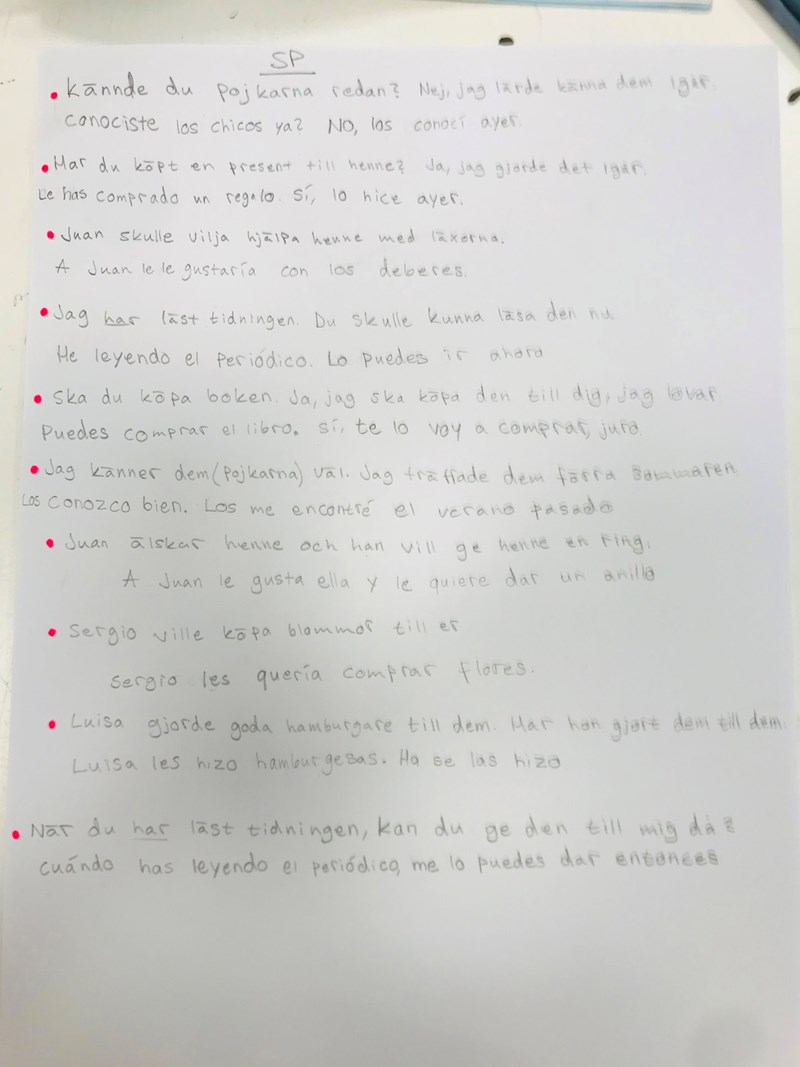 SP
• Kännde du pojkarna redan? Nej, jag lärde känna dem igår.
conociste los chicos ya? No, los conocí ayer.
• Har du köpt en present till henne? Ja, jag gjorde det igår.
Le has comprado un regalo. Sí, lo hice ayer.
• Juan skulle vilja hjälpa henne med läxorna.
A Juan le le gustaría con los deberes.
• Jag har läst tidningen. Du skulle kunna läsa den nu.
He leyendo el periódico. Lo puedes ir ahora
• Ska du köpa boken. Ja, jag ska köpa den till dig, jag lovar
Puedes comprar el libro. Sí, te lo voy a comprar, juro.
• Jag känner dem (pojkarna) väl. Jag träffade dem förra sommaren
Los conozco bien. Los me encontré el verano pasado
• Juan älskar henne och han vill ge henne en ring.
A Juan le gusta ella y le quiere dar un anillo
• Sergio ville köpa blommor till er
Sergio les quería comprar flores.
• Luisa gjorde goda hamburgare till dem. Har hon gjort dem till dem.
Luisa les hizo hamburgesas. Ha se las hizo
• När du har läst tidningen, kan du ge den till mig då?
cuándo has leyendo el periódico, me lo puedes dar entonces